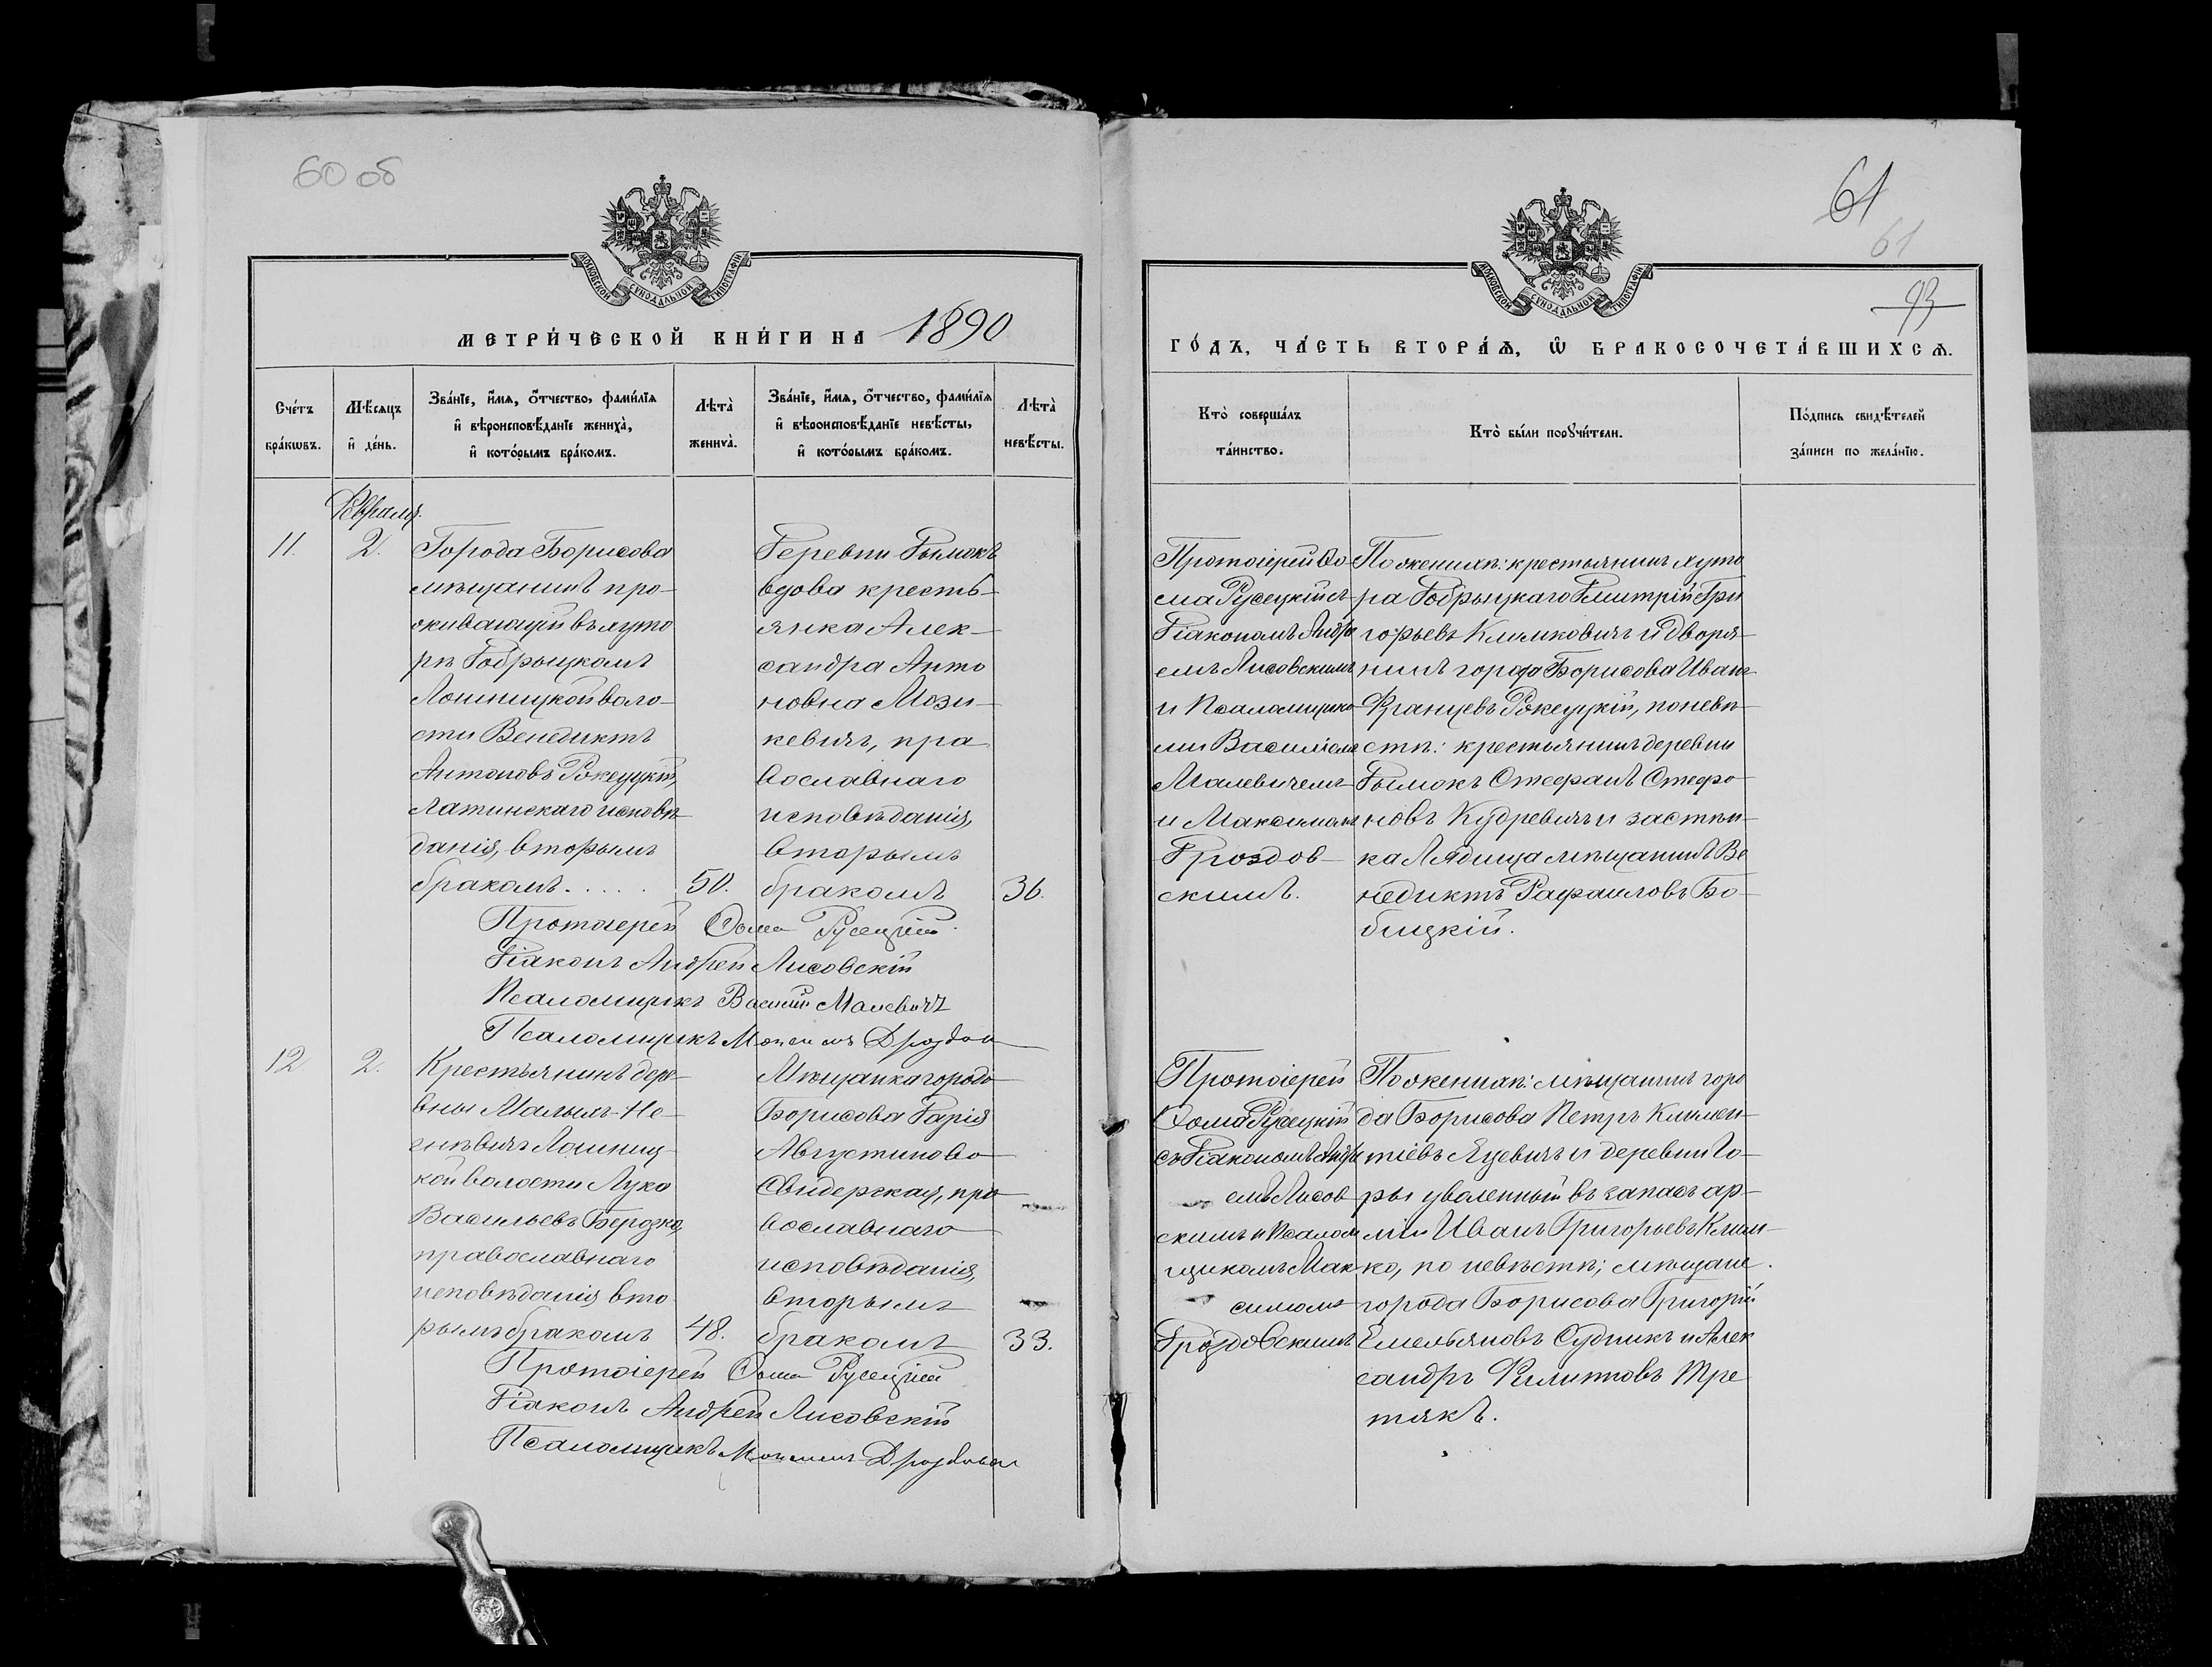 60 об
МОСКОВСКОЙ СѴНОДАЛЬНОЙ ТИПОГРАФІИ
МЕТРИ́ЧЕСКОЙ КНИ́ГИ НА 1890
Сче́тъ бра́кѡвъ.
Мѣ́сяцъ и҆ де́нь.
Зва́нїе, и҆́мѧ, ѻ҆́тчество, фами́лїѧ и҆ вѣроисповѣ́данїе жениха̀, и҆ кото́рымъ бра́комъ.
Лѣта̀ жениха̀.
Зва́нїе, и҆́мѧ, ѻ҆́тчество, фами́лїѧ и҆ вѣроисповѣ́данїе невѣ́сты, и҆ кото́рымъ бра́комъ.
Лѣта̀ невѣ́сты.
Февраля.
11.
2.
Города Борисова
мѣщанинъ про-
живающій въ хуто
рѣ Добрыцкомъ
Лошницкой воло-
сти Венедиктъ
Антоновъ Ржеуцкій,
Латинскаго исповѣ-
данія, вторымъ
бракомъ.....
50.
Деревни Дымокъ
вдова кресть-
янка Алек-
сандра Анто
новна Мози-
кевичъ, пра
вославнаго
исповѣданія,
вторымъ
бракомъ
36.
Протоіерей Ѳома Русецкій.
Діаконъ Андрей Лисовскій
Псаломщикъ Василій Малевичъ
Псаломщикъ Максимъ
12
2.
Крестьянинъ дере-
вни Малыхъ-Не-
гнѣвичъ Лошниц-
кой волости Лука
Васильевъ Берозко,
православнаго
исповѣданія вто
рымъ бракомъ
48.
Мѣщанка города
Борисова Дарія
Августинова
Свидерская, пра
вославнаго
исповѣданія,
вторымъ
бракомъ
33.
Протоіерей Ѳома Русецкій
Діаконъ Андрей Лисовскій
Псаломщикъ Максимъ
61
61
93
МОСКОВСКОЙ СѴНОДАЛЬНОЙ ТИПОГРАФІИ
ГО́ДЪ, ЧА́СТЬ ВТОРА́Ѧ, Ѽ БРАКОСОЧЕТА́ВШИХСѦ.
Кто̀ соверша́лъ та́инство.
Кто̀ бы́ли порꙋчи́тели.
По́дпись свидѣ́телей за́писи по жела́нїю.
Протоіерей Ѳо-
ма Русецкій съ
Діакономъ Андре
емъ Лисовскимъ
и Псаломщика-
ми Василіемъ
Малевичемъ
и Максимомъ
Дроздов-
скимъ.
По женихѣ: крестьянинъ хуто
ра Добрыцкаго Дмитрій Гри
горьевъ Климковичъ и дворя-
нинъ города Борисова Иванъ
Францевъ Ржеуцкій, по невѣ-
стѣ: крестьянинъ деревни
Дымокъ Стефанъ Стефа-
новъ Кудревичъ и застѣн-
ка Лядища мѣщанинъ Ве
недиктъ Рафаиловъ Бо-
бицкій.
Протоіерей
Ѳома Русецкій
съ Діакономъ Андре
емъ Лисов
скимъ и Псалом
щикомъ Мак
симомъ
Дроздовскимъ
По женихѣ: мѣщанинъ горо
да Борисова Петръ Климен-
тіевъ Яцевичъ и деревни Го-
ры уволенный въ запасъ ар-
міи Иванъ Григорьевъ Клим-
ко, по невѣстѣ; мѣщане
города Борисова Григорій
Емельяновъ Судникъ и Алек
сандръ Филипповъ Тре
тякъ.